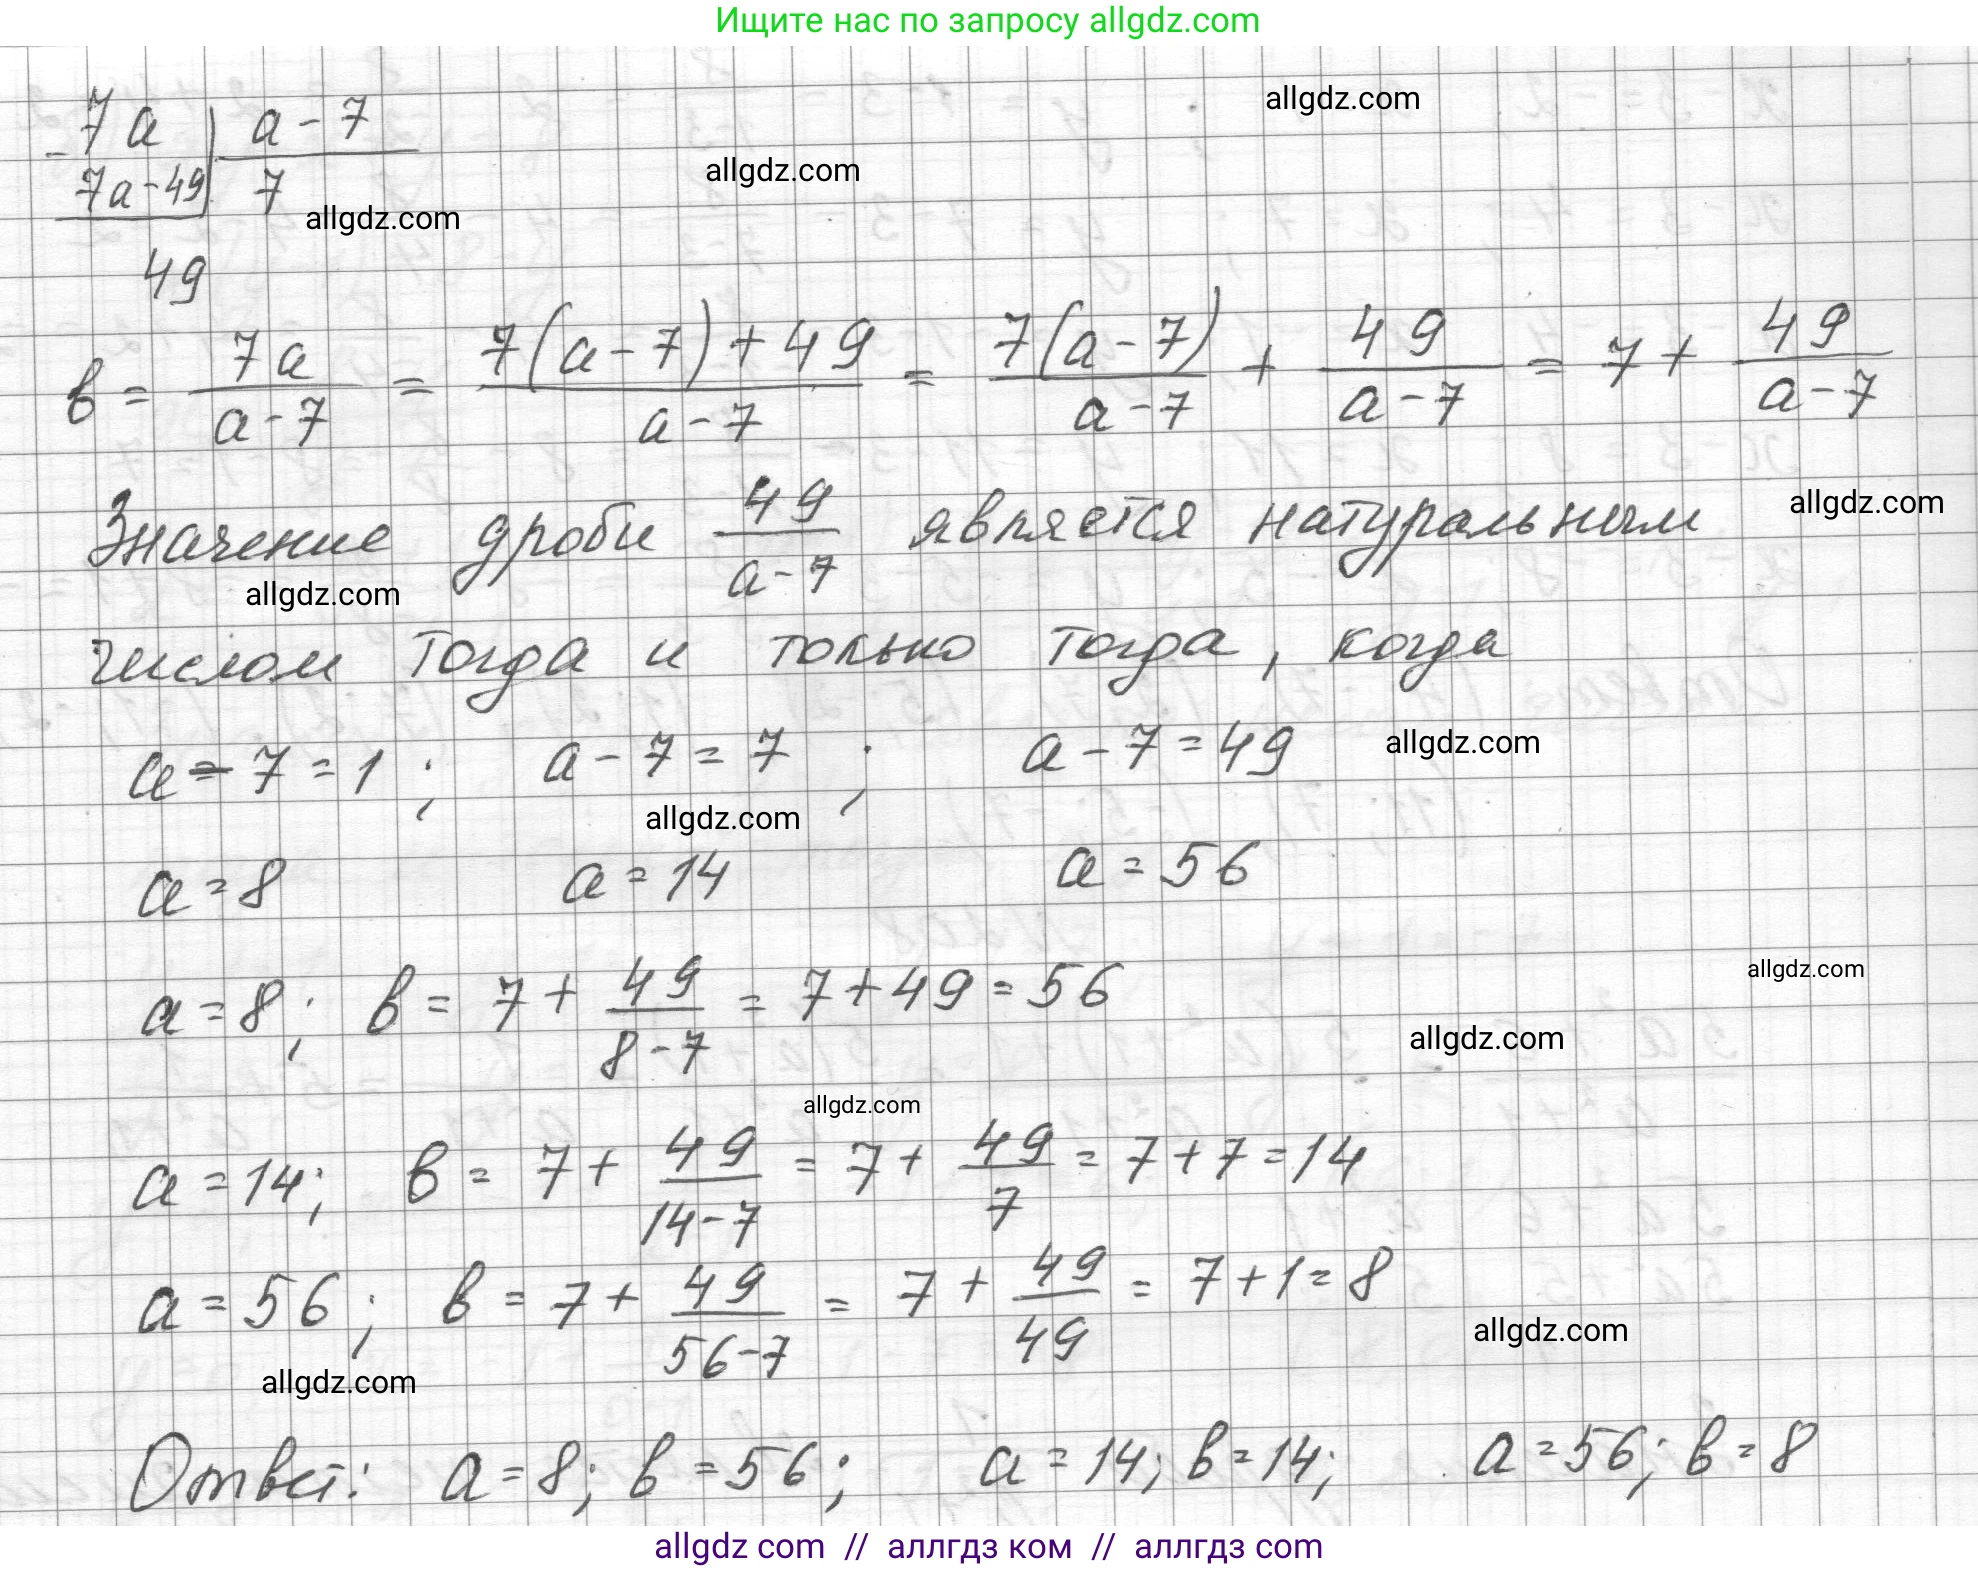 Ищите нас по запросу allgdz.com
allgdz.com
- 7a | a - 7
7a - 49 | 7
allgdz.com
allgdz.com
49
b = 7a/(a - 7) = (7(a - 7) + 49)/(a - 7) = 7(a - 7)/(a - 7) + 49/(a - 7) = 7 + 49/(a - 7)
Значение дроби 49/(a - 7) является натуральным
allgdz.com
allgdz.com
числом тогда и только тогда, когда
a - 7 = 1; a - 7 = 7; a - 7 = 49
allgdz.com
allgdz.com
a = 8 a = 14 a = 56
a = 8; b = 7 + 49/(8 - 7) = 7 + 49 = 56
allgdz.com
allgdz.com
allgdz.com
a = 14; b = 7 + 49/(14 - 7) = 7 + 49/7 = 7 + 7 = 14
a = 56; b = 7 + 49/(56 - 7) = 7 + 49/49 = 7 + 1 = 8
allgdz.com
allgdz.com
Ответ: a = 8; b = 56; a = 14; b = 14; a = 56; b = 8
allgdz com // аллгдз ком // аллгдз com